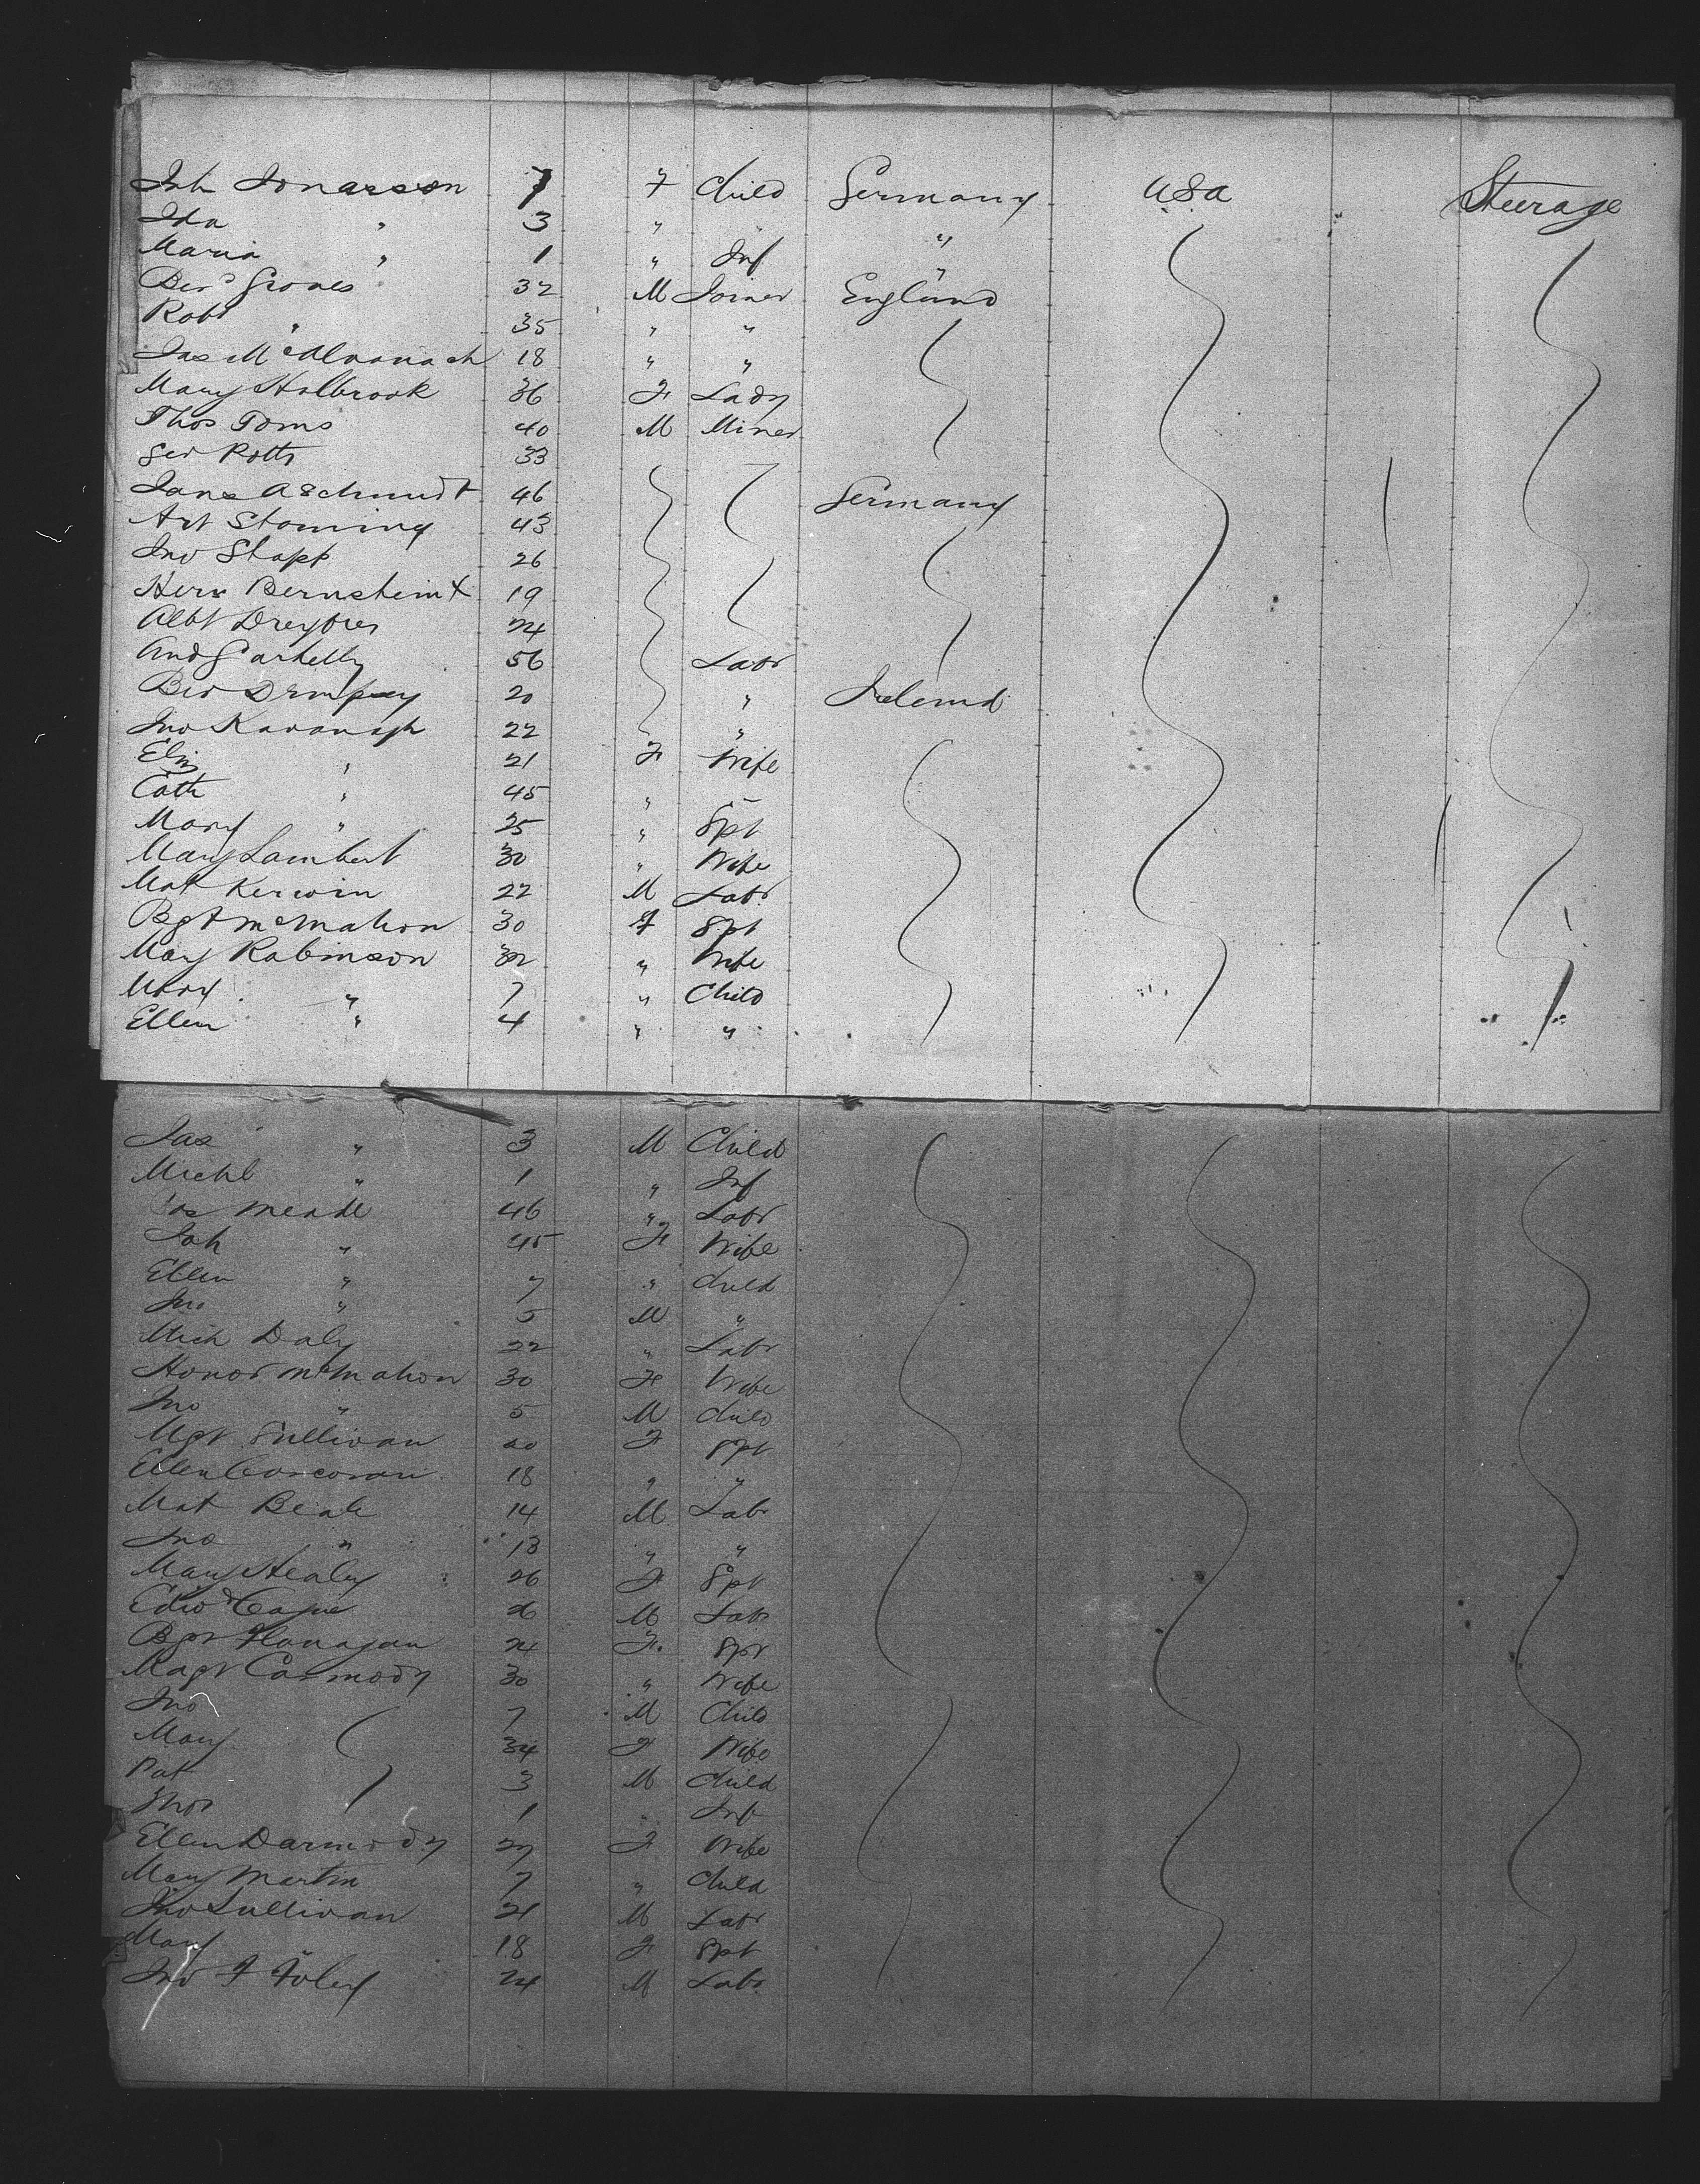 Joh Jonasson 7 F Child Germany USA Steerage
Ida " 3 " " "
Maria " 1 " Inf "
Benj Groves 32 M Joiner England
Robt " 35 " "
Jas McAlvanach 18 " "
Mary Holbrook 36 F Lady
Thos Toms 40 M Miner
Geo Potts 33
Jans A Schmidt 46 Germany
Art Stoming 43
Jno Stapp 26
Herr Bernstein 19
Albt Dreyfus 24
And 56 Labr
Ber Dempsey 20 " Ireland
Jno Kavanagh 22 "
Eliz " 21 F Wife
Cath " 45 " "
Mary " 25 " Spt
Mary Lambert 30 " Wife
Mat Kerwin 22 M Labr
Bgt McMahon 30 F Spt
Mary Robinson 32 " Wife
Mary " 7 " Child
Ellen " 4 " "
Jas " 3 M Child
Michl " 1 " Inf
Jas Meade 46 " Labr
Joh " 45 F Wife
Ellen " 7 " Child
Jno " 5 M "
Mich Daly 22 " Labr
Honor McMahon 30 F Wife
Jno " 5 M Child
Mgt Sullivan 20 F Spt
Ellen Corcoran 18 " "
Mat Beale 14 M Labr
Jno " 13 " "
Mary Healey 26 F Spt
Edwd 26 M Labr
Bgt Flanagan 24 F. Spt
Magt Carmody 30 " Wife
Jno 7 M Child
Mary 34 F Wife
Pat 3 M Child
Thos 1 " Inf
Ellen Darmody 27 F Wife
Mary Martin 7 " Child
Jno Sullivan 21 M Labr
Mary 18 F Spt
Jno F Foley 24 M Labr